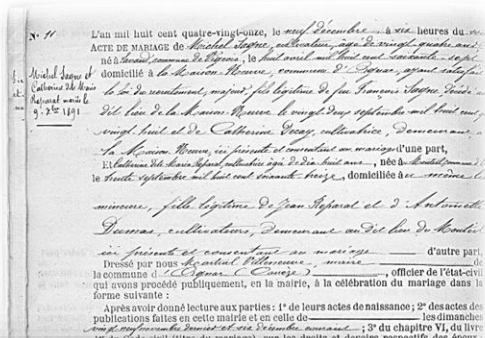 N° 11
Michel Sagne et
Catherine dite Marie
Reparat mariés le
9 Xbre 1891
L'an mil huit cent quatre-vingt-onze, le neuf décembre, à six heures du
ACTE DE MARIAGE de Michel Sagne, cultivateur, âgé de vingt quatre ans,
né à commune de le huit avril mil huit cent soixante-sept
domicilié à la Maison Neuve, commune d' ayant satisfait
à la loi de recrutement, majeur, fils légitime de feu François Sagne décédé a
dit lieu de la Maison Neuve le vingt deux septembre mil huit cent
vingt huit et de Catherine cultivatrice, demeurant a
la Maison Neuve, ici présente et consentant au mariage d'une part,
Et Catherine dite Marie Reparat, cultivatrice âgée de dix huit ans, née à commune d
le trente septembre mil huit cent soixante treize, domiciliée au même l
mineure, fille légitime de Jean Reparat et d'Antoinette
Dumas, cultivateurs, demeurant au dit lieu du
ici présents et consentant au mariage d'autre part.
Dressé par nous Martial Villeneuve, maire de
la commune d' (Corrèze), officier de l'état-civil
qui avons procédé publiquement, en la mairie, à la célébration du mariage dans la
forme suivante :
Après avoir donné lecture aux parties : 1° de leurs actes de naissance ; 2° des actes des
publications faites en cette mairie et en celle de les dimanches
vingt neuf novembre dernier et six décembre courant ; 3° du chapitre VI, du livre